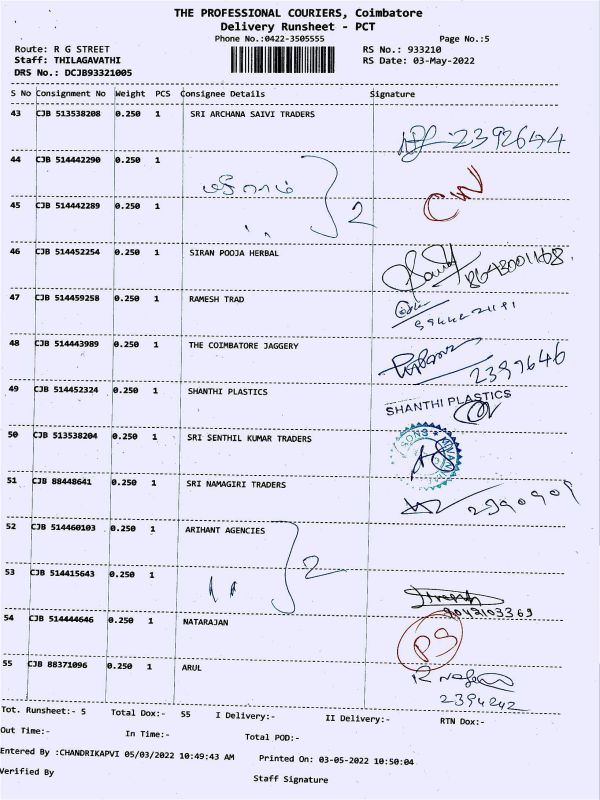 THE PROFESSIONAL COURIERS, Coimbatore
Delivery Runsheet - PCT
Phone No.:0422-3505555 Page No.:5
Route: R G STREET RS No.: 933210
Staff: THILAGAVATHI RS Date: 03-May-2022
DRS No.: DCJB93321005
S No Consignment No Weight PCS Consignee Details Signature
43 CJB 513538208 0.250 1 SRI ARCHANA SAIVI TRADERS
2392644
44 CJB 514442290 0.250 1
2
45 CJB 514442289 0.250 1
46 CJB 514452254 0.250 1 SIRAN POOJA HERBAL
47 CJB 514459258 0.250 1 RAMESH TRAD
48 CJB 514443989 0.250 1 THE COIMBATORE JAGGERY
2399646
49 CJB 514452324 0.250 1 SHANTHI PLASTICS
SHANTHI PLASTICS
50 CJB 513538204 0.250 1 SRI SENTHIL KUMAR TRADERS
51 CJB 88448641 0.250 1 SRI NAMAGIRI TRADERS
2390909
52 CJB 514460103 0.250 1 ARIHANT AGENCIES
2
53 CJB 514415643 0.250 1
9042103369
54 CJB 514444646 0.250 1 NATARAJAN
PS
55 CJB 88371096 0.250 1 ARUL
2394242
Tot. Runsheet:- 5 Total Dox:- 55 I Delivery:- II Delivery:- RTN Dox:-
Out Time:- In Time:- Total POD:-
Entered By :CHANDRIKAPVI 05/03/2022 10:49:43 AM Printed On: 03-05-2022 10:50:04
Verified By Staff Signature